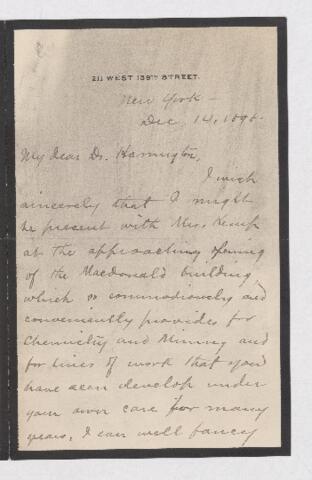 211 WEST 139TH STREET.
New York—
Dec, 14, 1898.
My dear Dr. Harrington,
I wish
sincerely that I might
be present with Mrs. Kemp
at the approaching opening
of the Macdonald building
which so commodiously and
conveniently provides for
Chemistry and Mining and
for lines of work that you
have seen develop under
your own care for many
years. I can well fancy